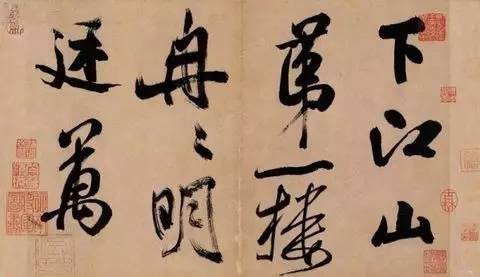 下江山
第一樓
冉〻明
廷萬